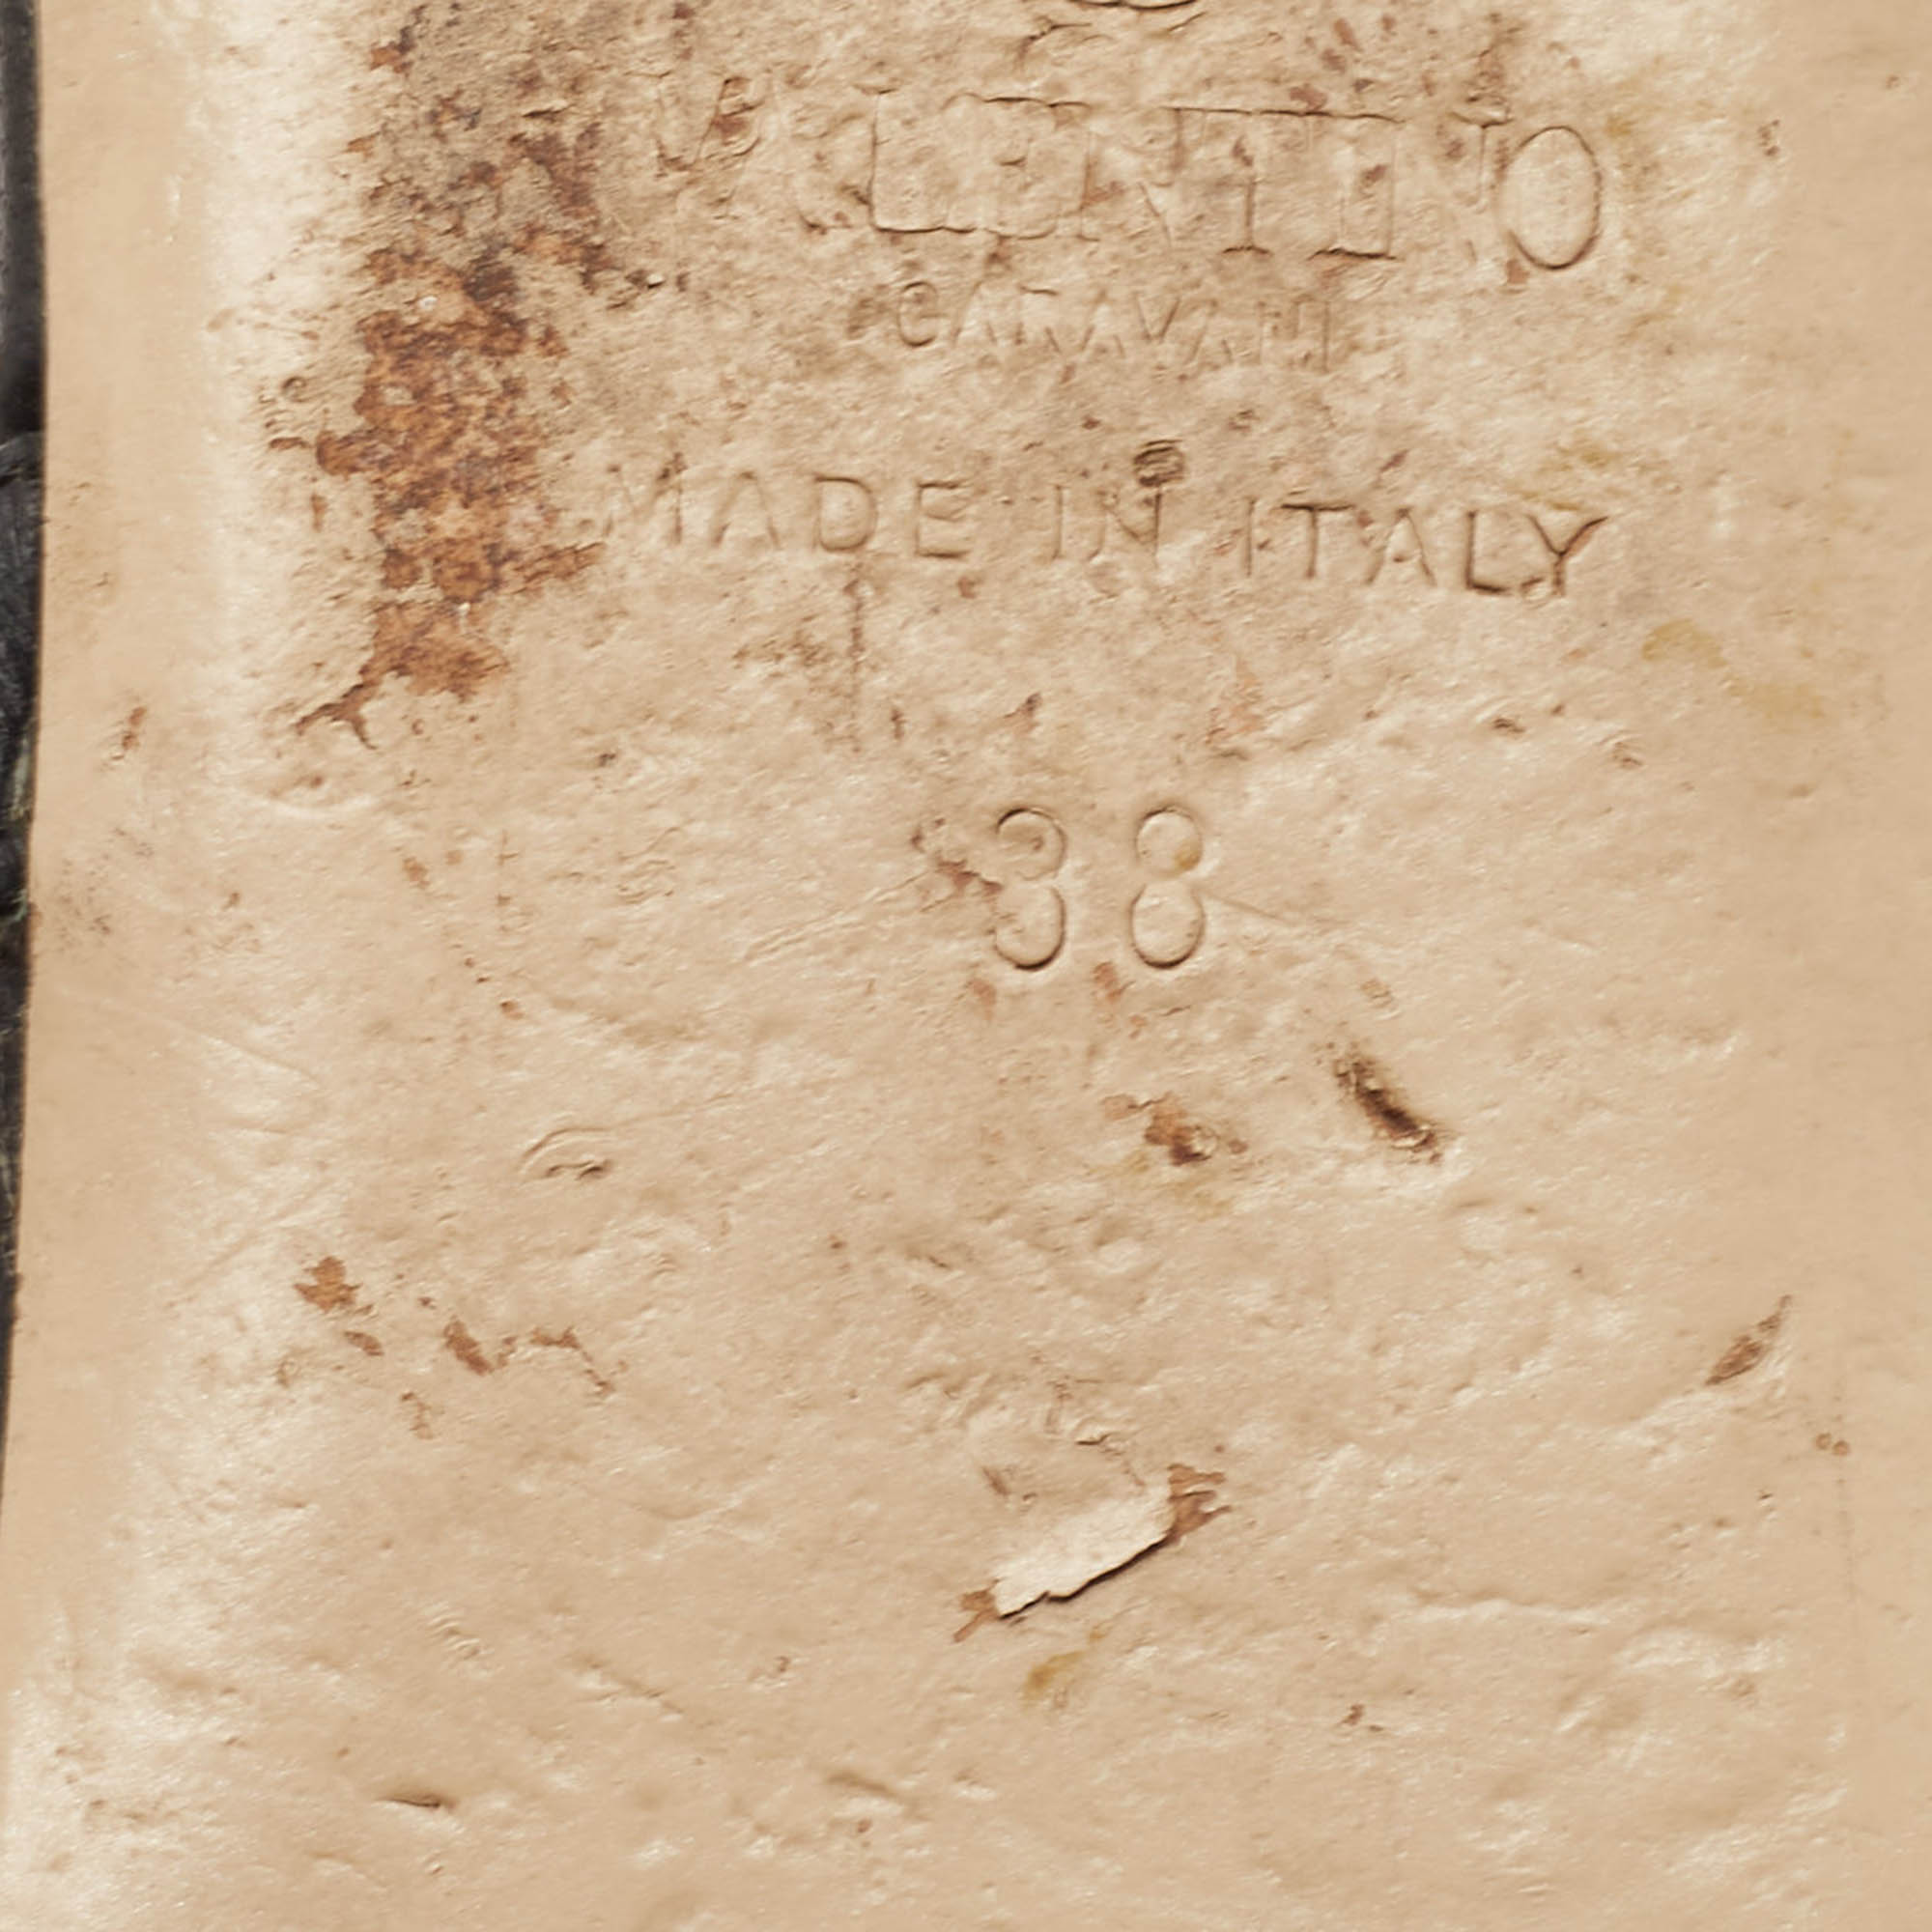 VALENTINO
GARAVANI
MADE IN ITALY
38